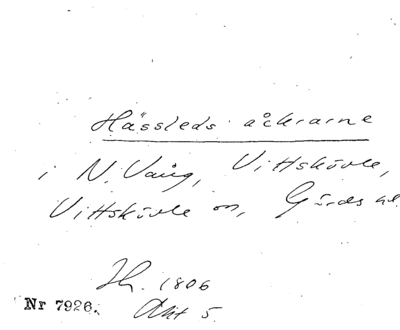 Hässleds åkrarne
i N. Vång, Vittskövle,
Vittskövle sn, Gärds hd.
1806
Nr 7926. Akt 5